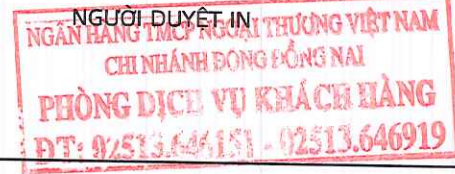 NGƯỜI DUYỆT IN
NGÂN HÀNG TMCP NGOẠI THƯƠNG VIỆT NAM
CHI NHÁNH ĐÔNG ĐỒNG NAI
PHÒNG DỊCH VỤ KHÁCH HÀNG
ĐT: - 02513.646919